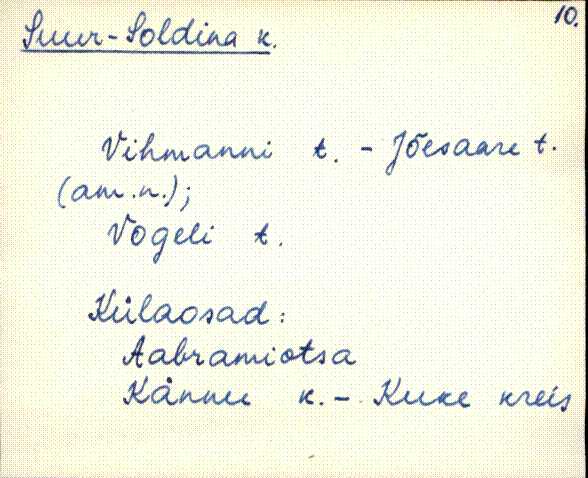 10.
Suur-Soldina k.
Vihmanni t. - Jõesaare t.
(am.n.);
Vogeli t.
Külaosad:
Aabramiotsa
Kännu k. - Kuke kreis